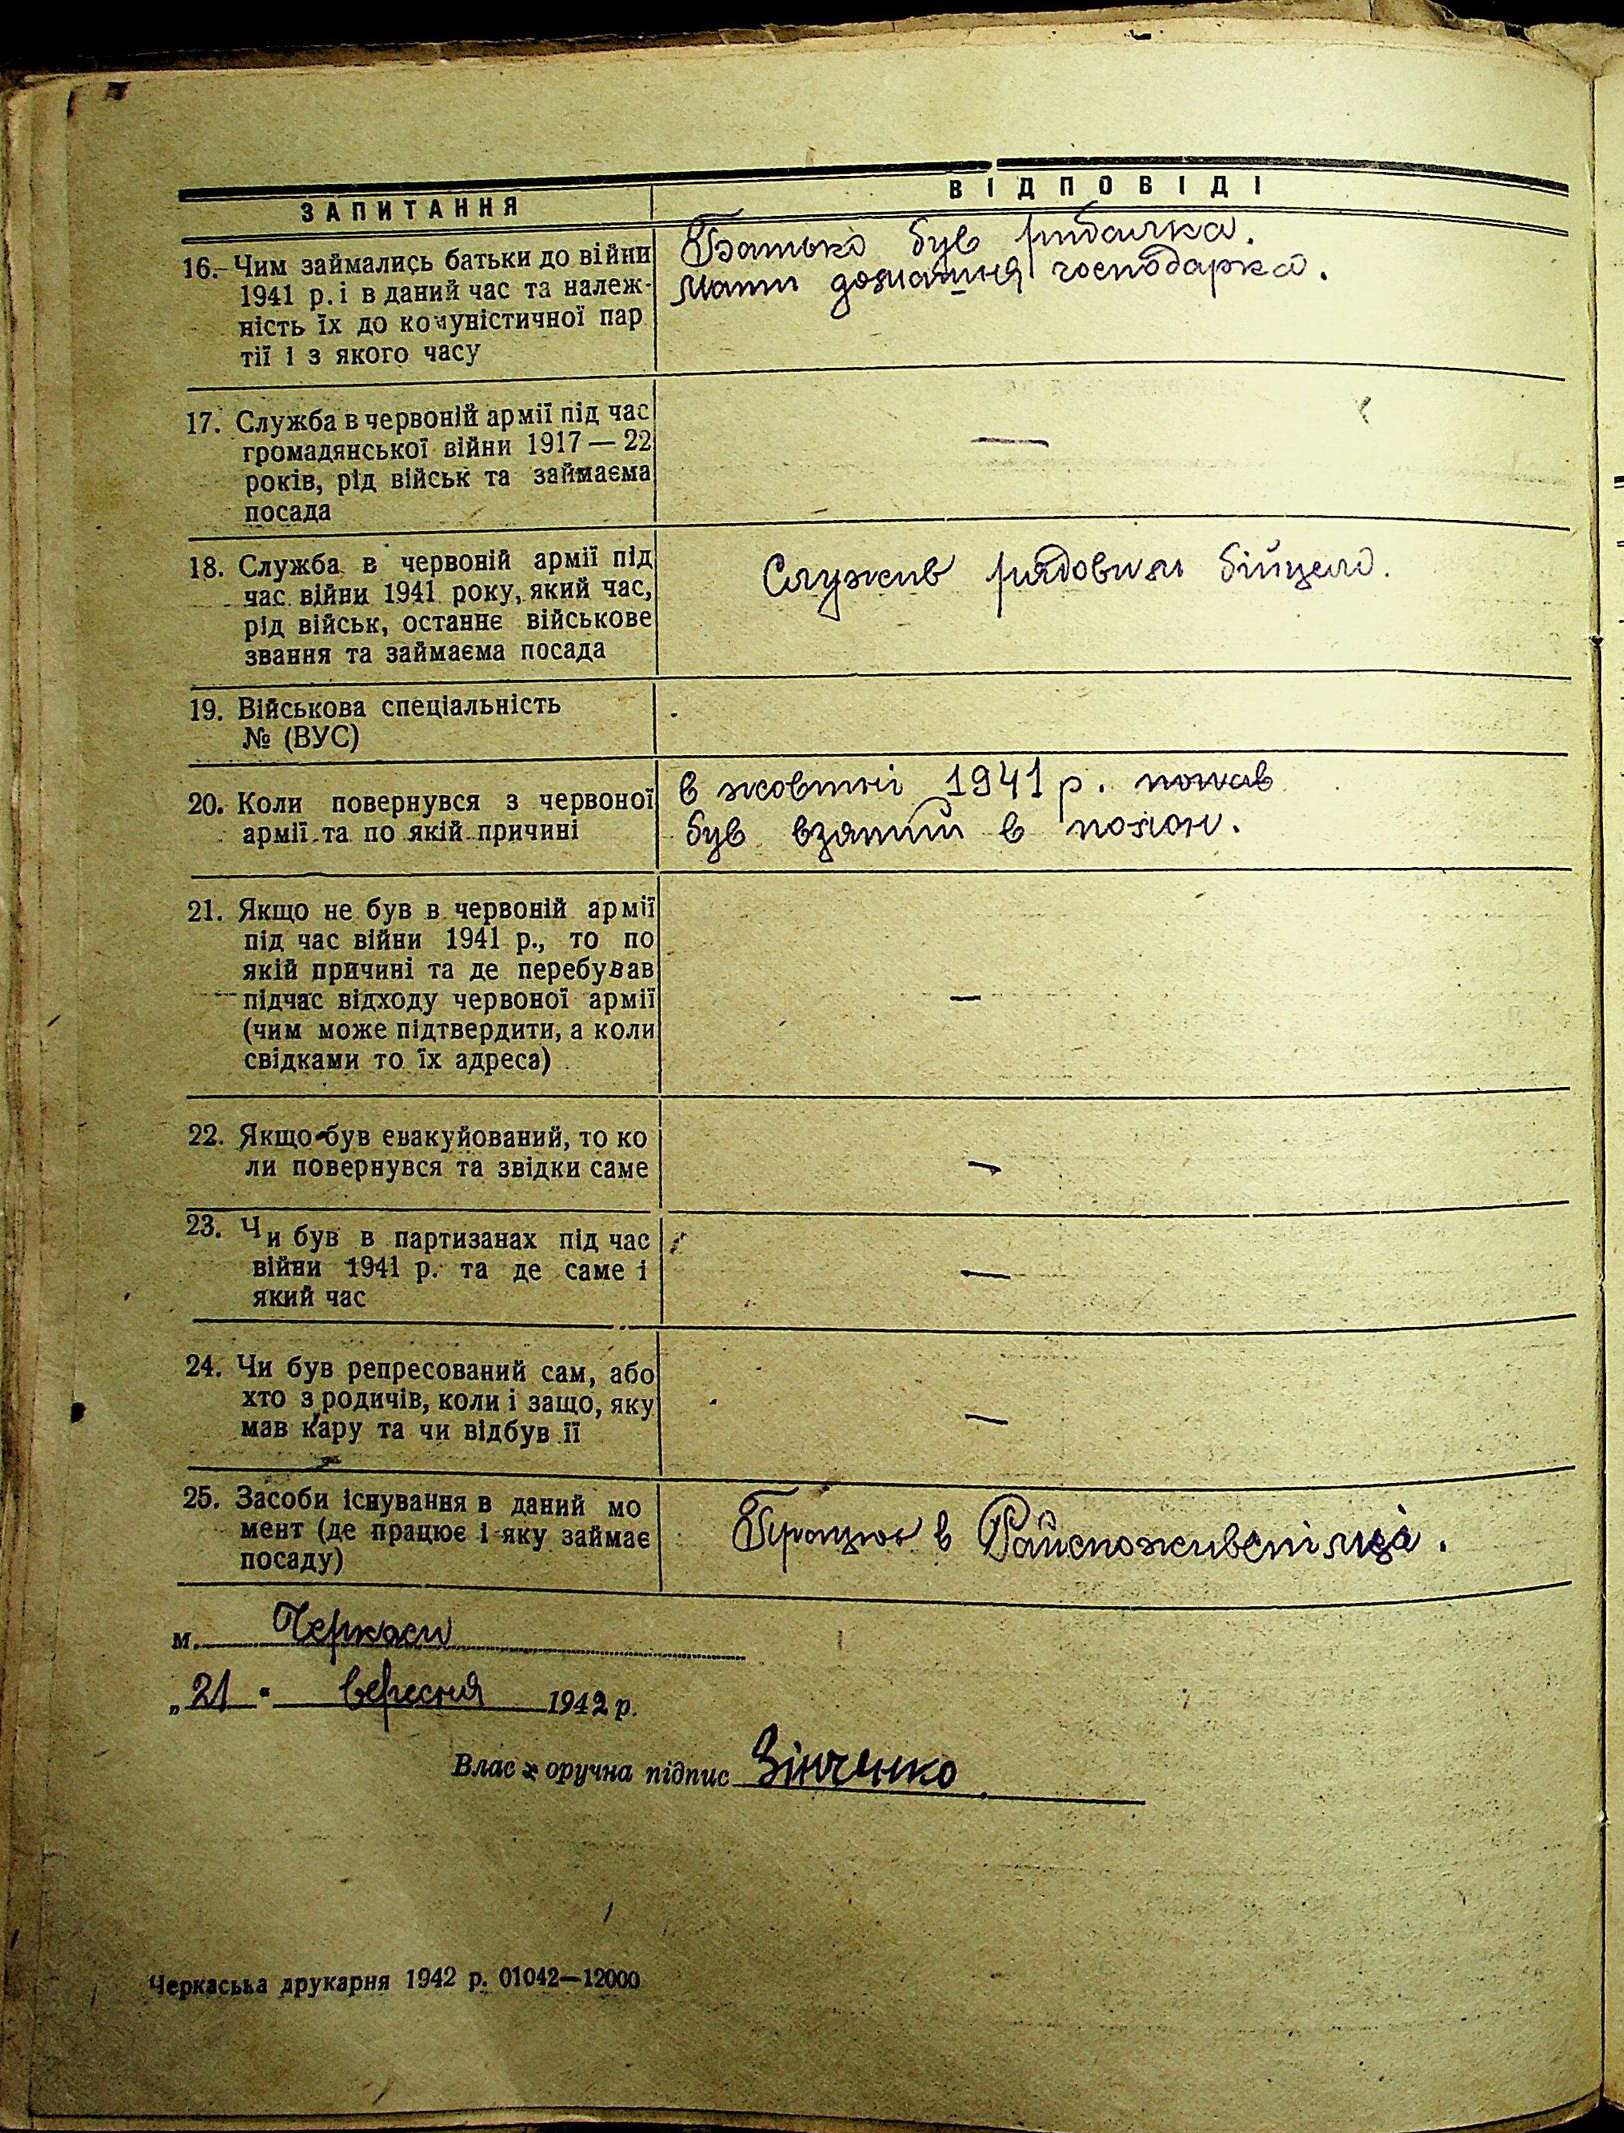 ЗАПИТАННЯ
ВІДПОВІДІ
16. Чим займались батьки до війни
1941 р. і в даний час та належ-
ність їх до комуністичної пар
тії і з якого часу
Батько був рибалка.
Мати домашня господарка.
17. Служба в червоній армії під час
громадянської війни 1917 — 22
років, рід військ та займаєма
посада
—
18. Служба в червоній армії під
час війни 1941 року, який час,
рід військ, останнє військове
звання та займаєма посада
Служив рядовим бійцем.
19. Військова спеціальність
№ (ВУС)
20. Коли повернувся з червоної
армії та по якій причині
в жовтні 1941 р.
був взятий в полон.
21. Якщо не був в червоній армії
під час війни 1941 р., то по
якій причині та де перебував
підчас відходу червоної армії
(чим може підтвердити, а коли
свідками то їх адреса)
—
22. Якщо був евакуйований, то ко
ли повернувся та звідки саме
—
23. Чи був в партизанах під час
війни 1941 р. та де саме і
який час
—
24. Чи був репресований сам, або
хто з родичів, коли і защо, яку
мав кару та чи відбув її
—
25. Засоби існування в даний мо
мент (де працює і яку займає
посаду)
Працює в Райспоживспілці.
м. Черкаси
„21" вересня 1942 р.
Власноручна підпис Зінченко
Черкаська друкарня 1942 р. 01042—12000